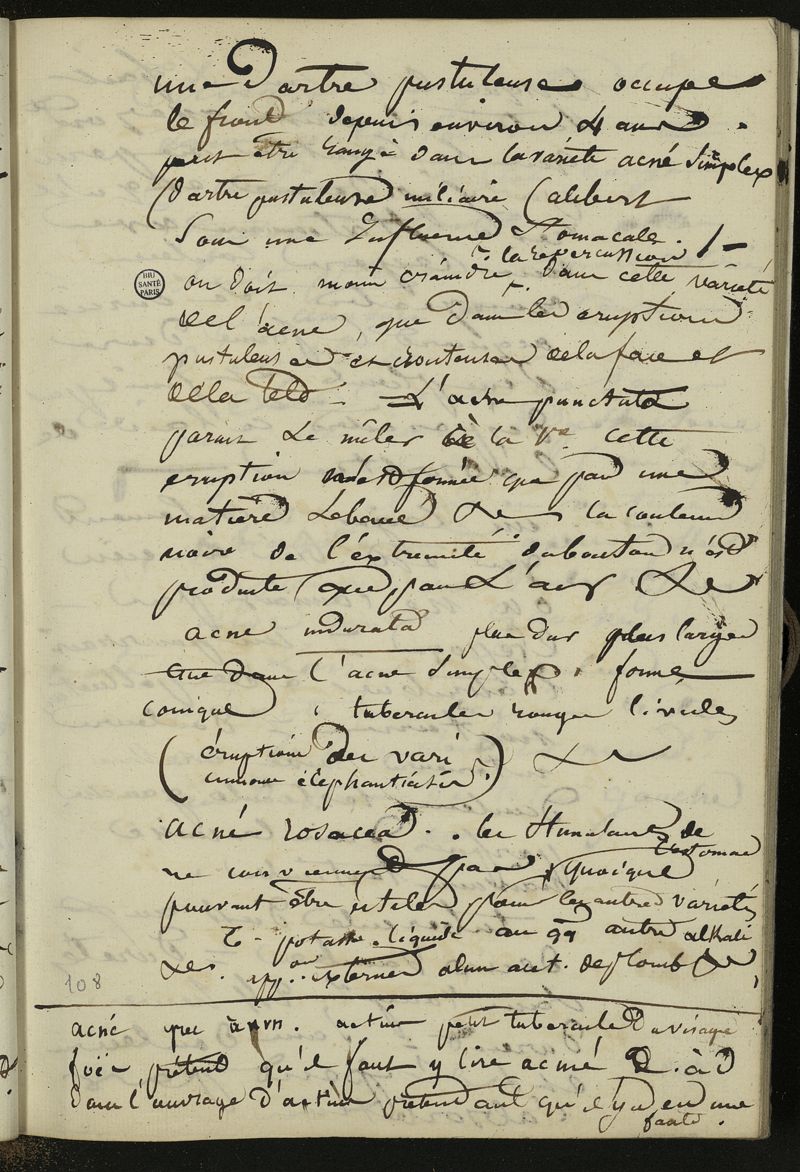 une Dartre pustuleuse occupe
le front depuis environ 4 ans.
peut être rangé dans la variété acné simplex
(Dartre pustuleuse miliaire (alibert
sous une Influence Stomacale.
la repercussion
on doit moins craindre dans cette variété
de l'acné, que dans les eruptions
pustuleuses et crouteuses de la face et
de la tete. L'acné punctata
parait se mêler à la
cette
eruption n'est formée que par une
matière sebacé &c la couleur
noire de l'éxtremité du bouton n'est
produite que par L'air &c
acne indurata plus dur plus large
que dans l'acne simplex, forme
conique, tubercules rouges livides
(éruption des vari
comme élephantiasis) &c
acné rosacea. les Stimulans de
l'estomac
ne conviennent pas quoique
pouvant être utiles pour les autres variétés
potasse liquide ou qq autre alkali
app.on externes alun acet. de plomb &c
BIU SANTÉ PARIS
108
acné petit tubercule du visage
prétend qu'il faut y lire acmé
dans l'ouvrage d'aetius prétendant qu'il y a eu une
faute.